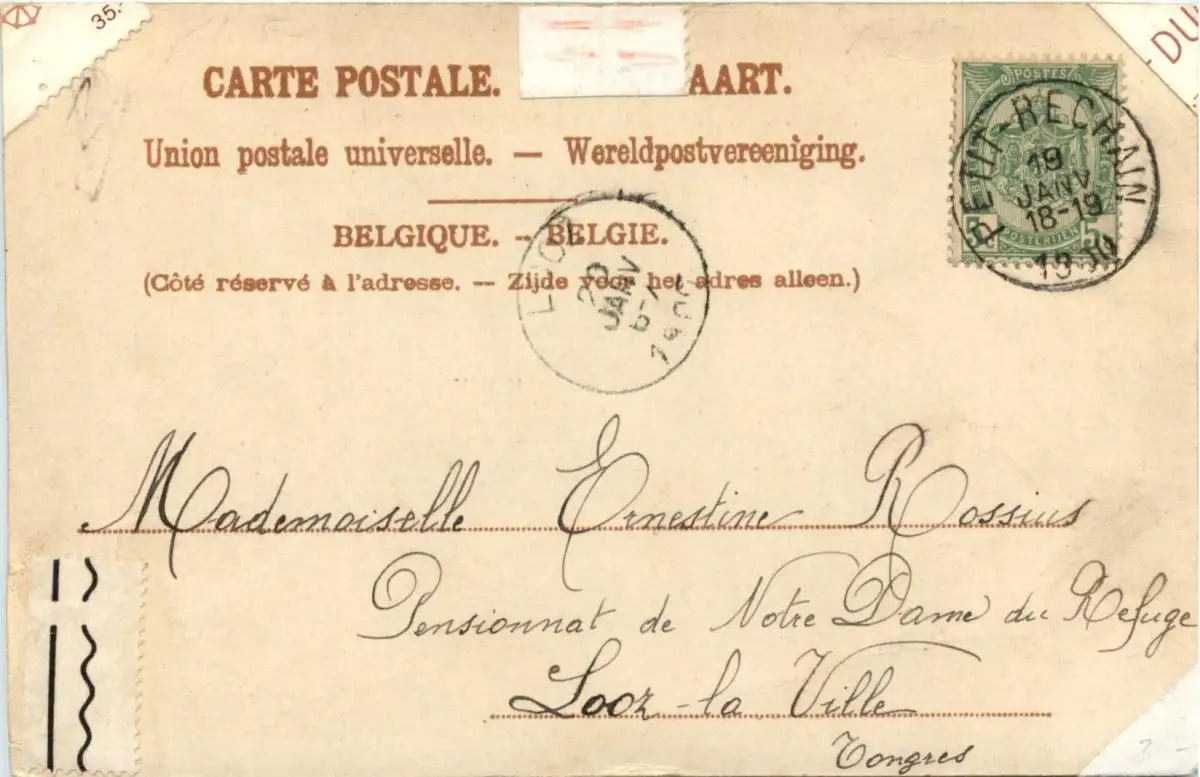 35.-
DU
CARTE POSTALE. AART.
Union postale universelle. — Wereldpostvereeniging.
BELGIQUE. - BELGIE.
(Côté réservé à l'adresse. — Zijde voor het adres alleen.)
POSTES
POSTERIJEN
5 5
PETIT-RECHAIN
19
JANV
18-19
1900
LOOZ
20
JANV
6-7
1900
Mademoiselle Ernestine Rossius
Pensionnat de Notre Dame du Refuge
Looz-la Ville
Tongres